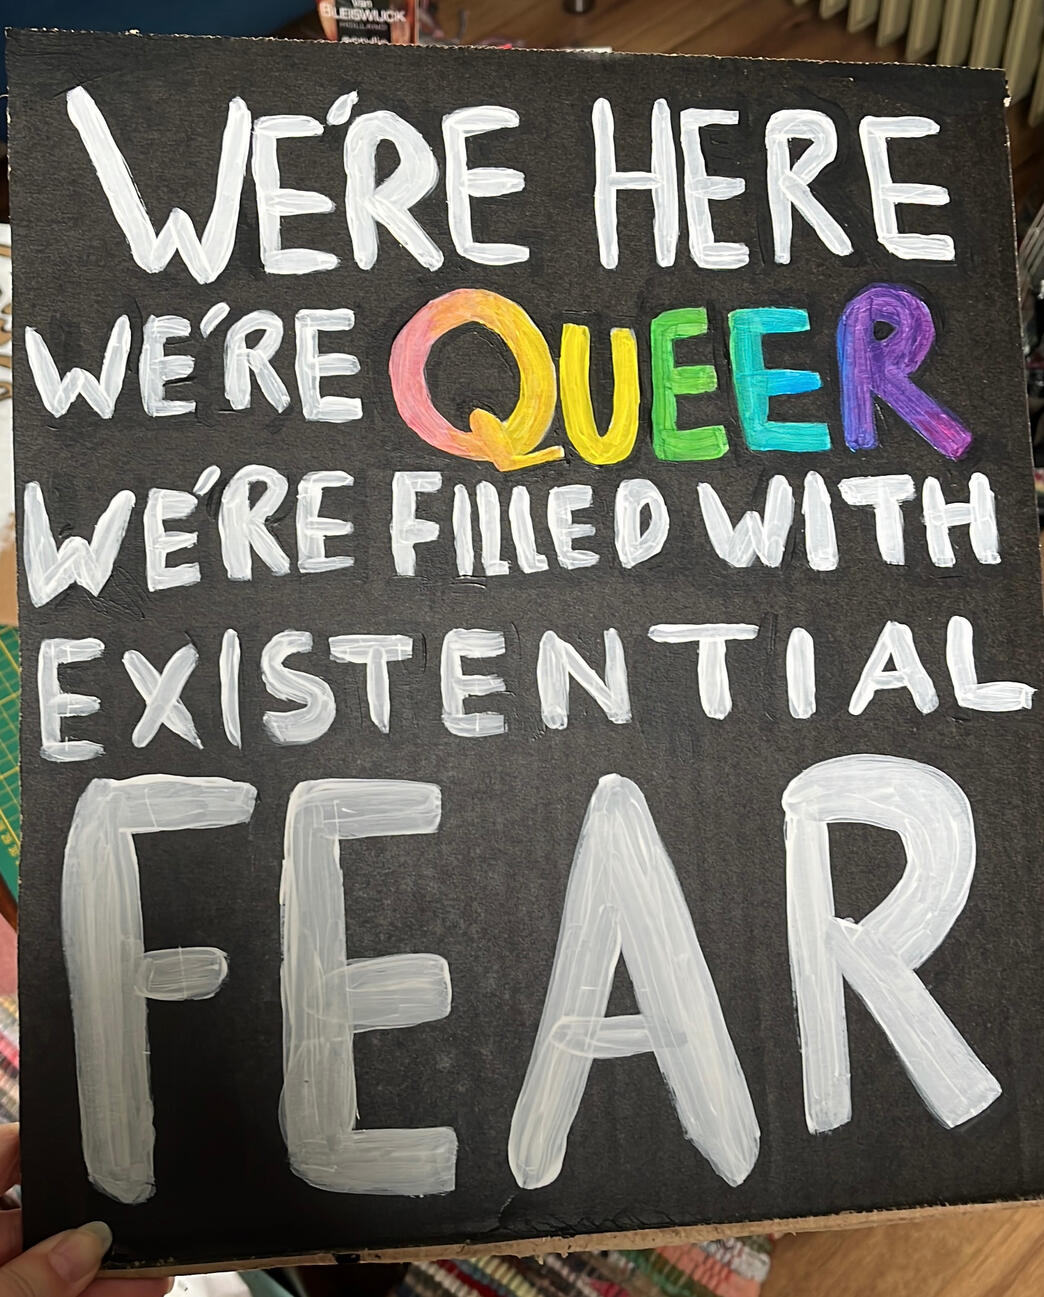 van
BLEISWIJCK
acrylic
WE'RE HERE
WE'RE QUEER
WE'RE FILLED WITH
EXISTENTIAL
FEAR